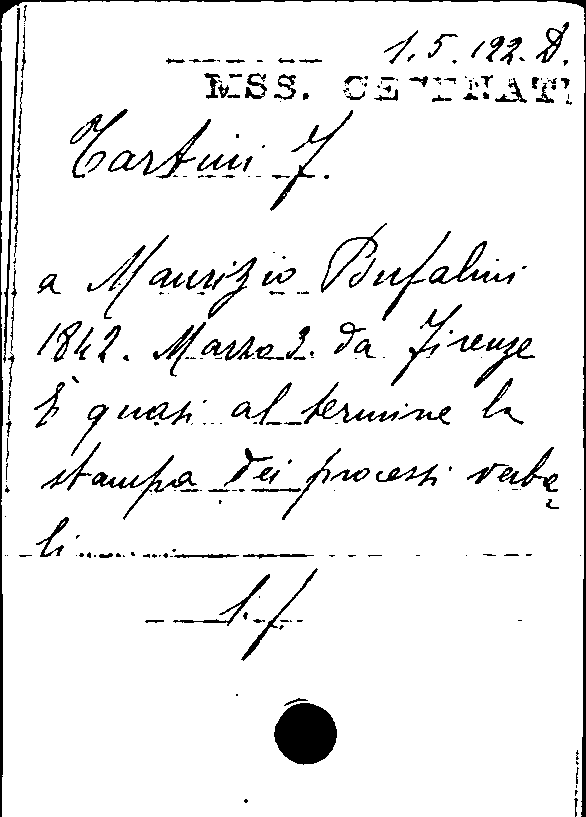 1.5.192.D.
MSS. CESENATI
Tartini F.
a Maurizio Bufalini
1842. Marzo 3. da Firenze
È quasi al termine la
stampa dei processi verba
li
1. f.